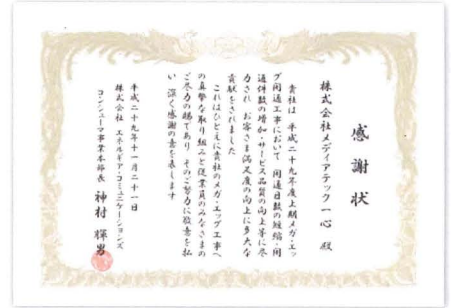 感謝状
株式会社メディアテック一心 殿
貴社は 平成二十九年度上期メガ・エッ
グ開通工事において 開通日数の短縮・開
通件数の増加・サービス品質の向上等に尽
力され お客さま満足度の向上に多大な
貢献をされました
これはひとえに貴社のメガ・エッグ工事へ
の真摯な取り組みと従業員のみなさまの
ご尽力の賜であり そのご努力に敬意を払
い 深く感謝の意を表します
平成二十九年十一月二十一日
株式会社 エネルギア・コミュニケーションズ
コンシューマ事業本部長 神村 輝男